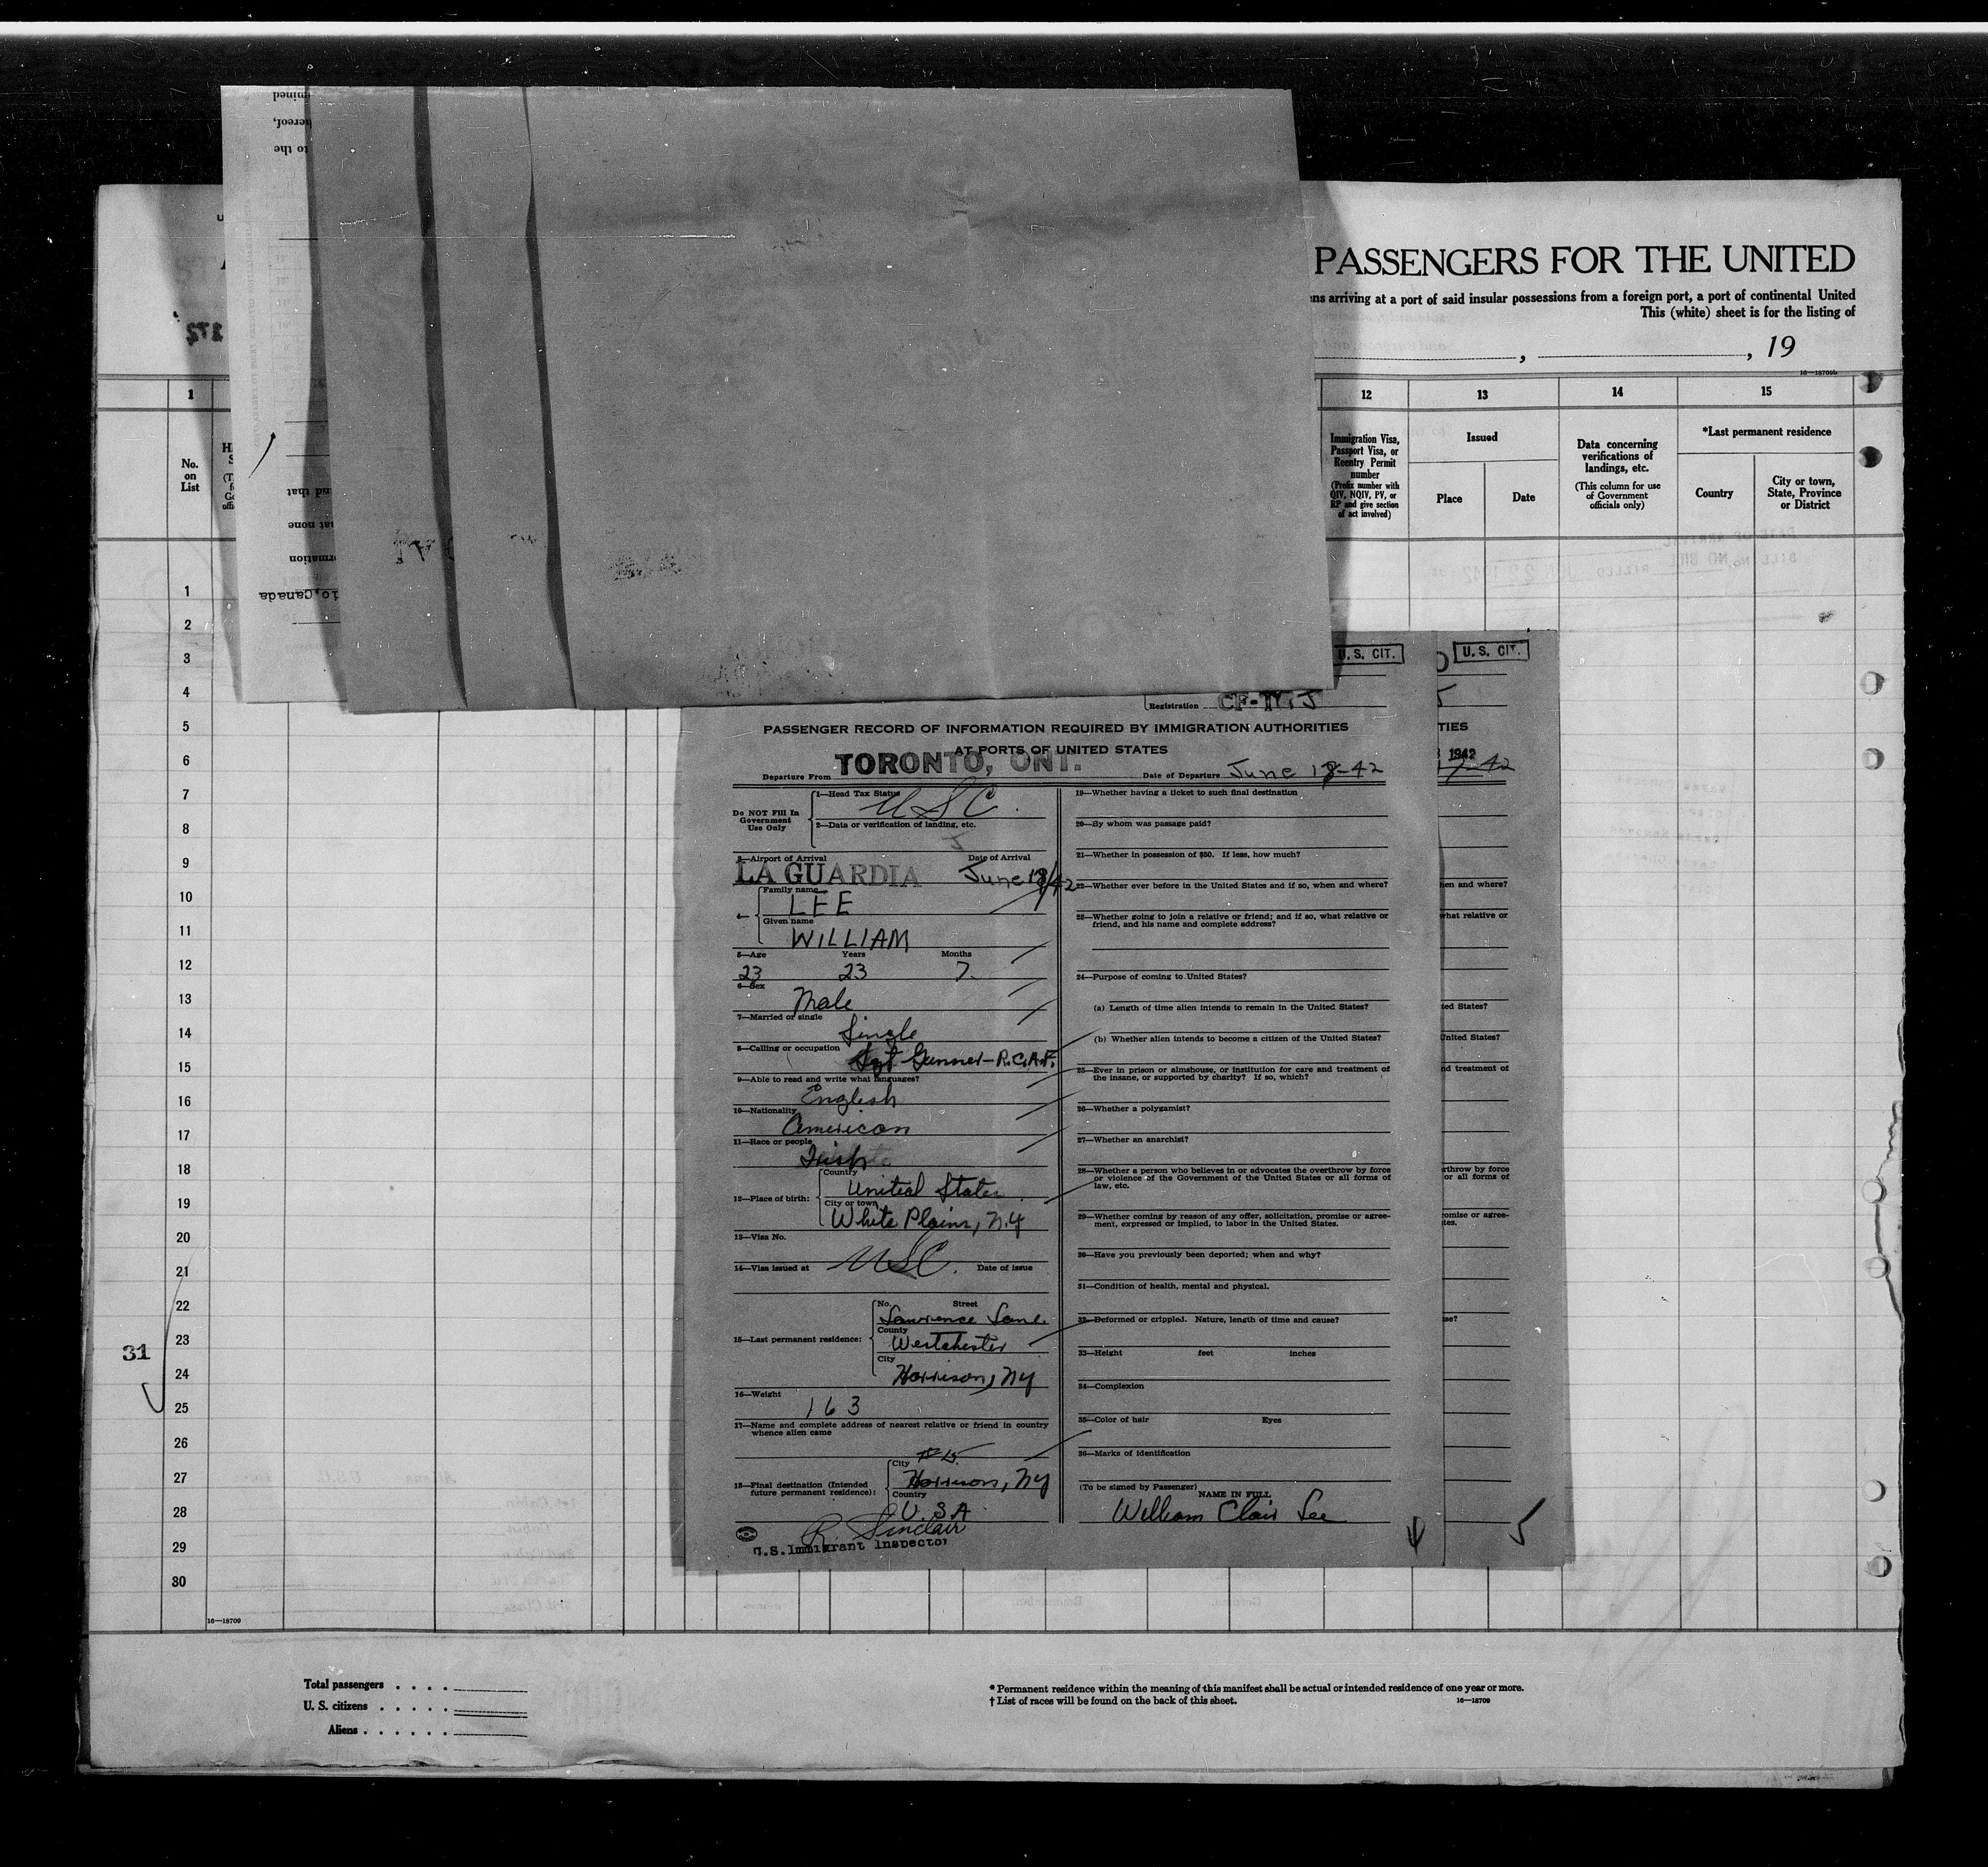 PASSENGERS FOR THE UNITED
ns arriving at a port of said insular possessions from a foreign port, a port of continental United
This (white) sheet is for the listing of
, , 19
16—18709b
1 12 13 14 15
No. on List
Immigration Visa, Passport Visa, or Reentry Permit number
(Prefix number with QIV, NQIV, PV, or RP and give section of act involved)
Issued
Place Date
Data concerning verifications of landings, etc.
(This column for use of Government officials only)
*Last permanent residence
Country
City or town, State, Province or District
mined
hereof,
to the
and that
hat none
rmation
io, Canada
1
2
3
4
5
6
7
8
9
10
11
12
13
14
15
16
17
18
19
20
21
22
23
24
25
26
27
28
29
30
31
U. S. CIT.
U. S. CIT.
Registration
PASSENGER RECORD OF INFORMATION REQUIRED BY IMMIGRATION AUTHORITIES
AT PORTS OF UNITED STATES
Departure From TORONTO, ONT. Date of Departure June 18-42
Do NOT Fill In Government Use Only
1—Head Tax Status USC
2—Data or verification of landing, etc.
3—Airport of Arrival Date of Arrival
LA GUARDIA June 18/42
4— Family name
LEE
Given name
WILLIAM
5—Age Years Months
23 23 7
6—Sex
Male
7—Married or single
Single
8—Calling or occupation
Sgt Gunner-R.C.A.F.
9—Able to read and write what languages?
English
10—Nationality
American
11—Race or people
Irish
12—Place of birth: Country
United States
City or town
White Plains, N.Y
13—Visa No.
USC.
14—Visa issued at Date of issue
15—Last permanent residence: No. Street
Lawrence Lane
County
Westchester
City
Harrison, NY
16—Weight
163
17—Name and complete address of nearest relative or friend in country
whence alien came
18—Final destination (Intended future permanent residence): City
Harrison, NY
Country
U.S.A.
R. Sinclair
U.S. Immigrant Inspector
19—Whether having a ticket to such final destination
20—By whom was passage paid?
21—Whether in possession of $50. If less, how much?
22—Whether ever before in the United States and if so, when and where?
23—Whether going to join a relative or friend; and if so, what relative or
friend, and his name and complete address?
24—Purpose of coming to United States?
(a) Length of time alien intends to remain in the United States?
(b) Whether alien intends to become a citizen of the United States?
25—Ever in prison or almshouse, or institution for care and treatment of
the insane, or supported by charity? If so, which?
26—Whether a polygamist?
27—Whether an anarchist?
28—Whether a person who believes in or advocates the overthrow by force
or violence of the Government of the United States or all forms of
law, etc.
29—Whether coming by reason of any offer, solicitation, promise or agree-
ment, expressed or implied, to labor in the United States.
30—Have you previously been deported; when and why?
31—Condition of health, mental and physical.
32—Deformed or crippled. Nature, length of time and cause?
33—Height feet inches
34—Complexion
35—Color of hair Eyes
36—Marks of identification
(To be signed by Passenger)
NAME IN FULL
William Clair Lee
TIES
1942
17-42
hen and where?
what relative or
ted States?
United States?
nd treatment of
rthrow by force
or all forms of
omise or agree-
tes.
se?
5
16—18709
Total passengers . . . .
U. S. citizens . . . . .
Aliens . . . . . .
* Permanent residence within the meaning of this manifest shall be actual or intended residence of one year or more.
† List of races will be found on the back of this sheet.
16—18709